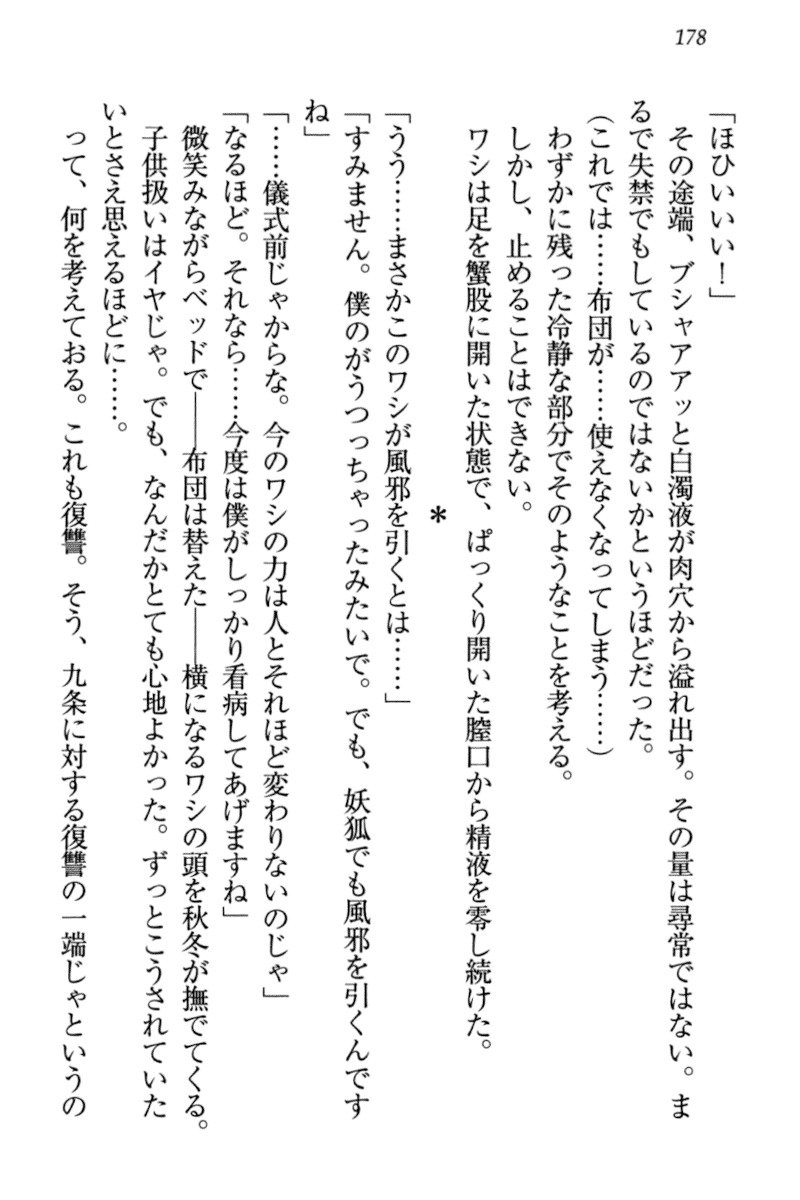 178
「ほひぃぃぃ！」
その途端、ブシャアアッと白濁液が肉穴から溢れ出す。その量は尋常ではない。ま
るで失禁でもしているのではないかというほどだった。
（これでは……布団が……使えなくなってしまう……）
わずかに残った冷静な部分でそのようなことを考える。
しかし、止めることはできない。
ワシは足を蟹股に開いた状態で、ぱっくり開いた膣口から精液を零し続けた。
＊
「うう……まさかこのワシが風邪を引くとは……」
「すみません。僕のがうつっちゃったみたいで。でも、妖狐でも風邪を引くんです
ね」
「……儀式前じゃからな。今のワシの力は人とそれほど変わりないのじゃ」
「なるほど。それなら……今度は僕がしっかり看病してあげますね」
微笑みながらベッドで――布団は替えた――横になるワシの頭を秋冬が撫でてくる。
子供扱いはイヤじゃ。でも、なんだかとても心地よかった。ずっとこうされていた
いとさえ思えるほどに……。
って、何を考えておる。これも復讐。そう、九条に対する復讐の一端じゃというの